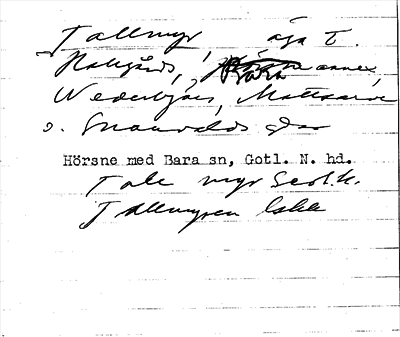 Tallmyr, äga t.
Hallgårds, Bara annex,
Nederbjärs, Mattsarve
o. Snauvalds gdar
Hörsne med Bara sn, Gotl. N. hd.
Tall myr Geol.k.
Tallmyren